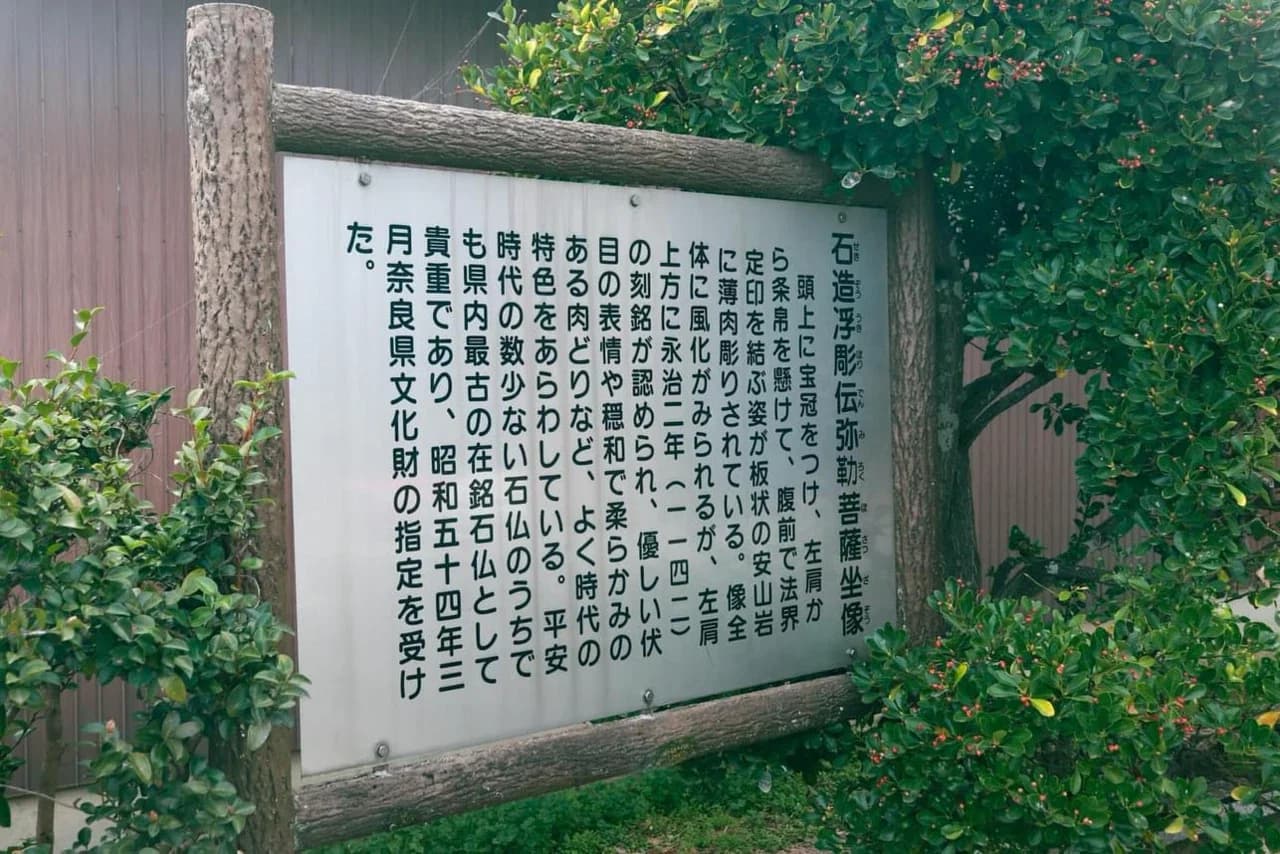 石造浮彫伝弥勒菩薩坐像
せきぞううきぼりでんみろくぼさつざぞう
頭上に宝冠をつけ、左肩か
ら条帛を懸けて、腹前で法界
定印を結ぶ姿が板状の安山岩
に薄肉彫りされている。像全
体に風化がみられるが、左肩
上方に永治二年(一一四二)
の刻銘が認められ、優しい伏
目の表情や穏和で柔らかみの
ある肉どりなど、よく時代の
特色をあらわしている。平安
時代の数少ない石仏のうちで
も県内最古の在銘石仏として
貴重であり、昭和五十四年三
月奈良県文化財の指定を受け
た。